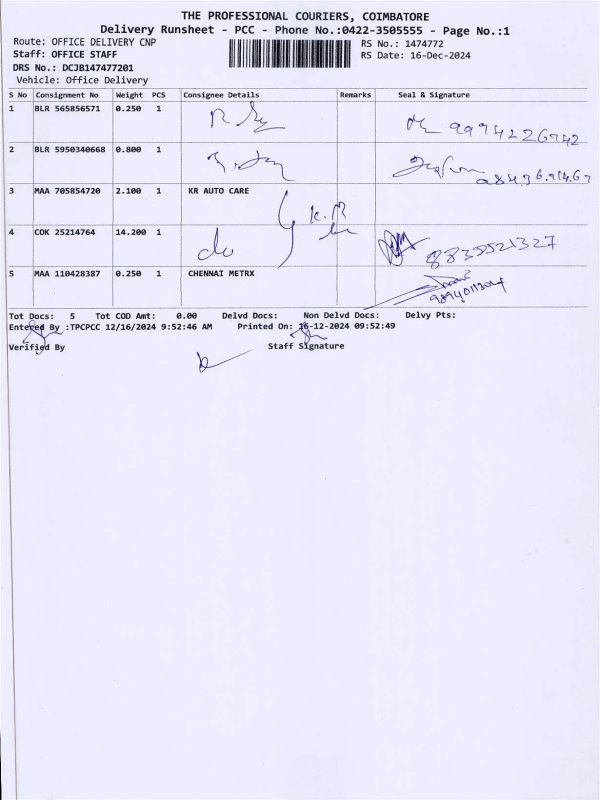 THE PROFESSIONAL COURIERS, COIMBATORE
Delivery Runsheet - PCC - Phone No.:0422-3505555 - Page No.:1
Route: OFFICE DELIVERY CNP RS No.: 1474772
Staff: OFFICE STAFF RS Date: 16-Dec-2024
DRS No.: DCJB147477201
Vehicle: Office Delivery
S No Consignment No Weight PCS Consignee Details Remarks Seal & Signature
1 BLR 565856571 0.250 1
2 BLR 5950340668 0.800 1
3 MAA 705854720 2.100 1 KR AUTO CARE
K.R
4 COK 25214764 14.200 1 do 8835521327
5 MAA 110428387 0.250 1 CHENNAI METRX
Tot Docs: 5 Tot COD Amt: 0.00 Delvd Docs: Non Delvd Docs: Delvy Pts:
Entered By :TPCPCC 12/16/2024 9:52:46 AM Printed On: 16-12-2024 09:52:49
Verified By Staff Signature